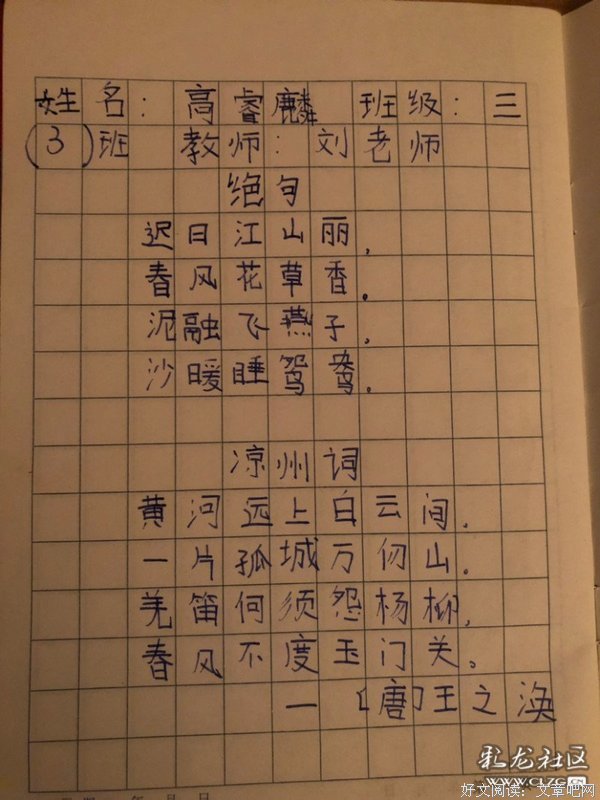 姓名：高睿麟 班级：三
（3）班 教师：刘老师
绝句
迟日江山丽，
春风花草香。
泥融飞燕子，
沙暖睡鸳鸯。
凉州词
黄河远上白云间，
一片孤城万仞山。
羌笛何须怨杨柳，
春风不度玉门关。
—［唐］王之涣
彩龙社区
WWW.CLZG.CN
好文阅读：文章吧网